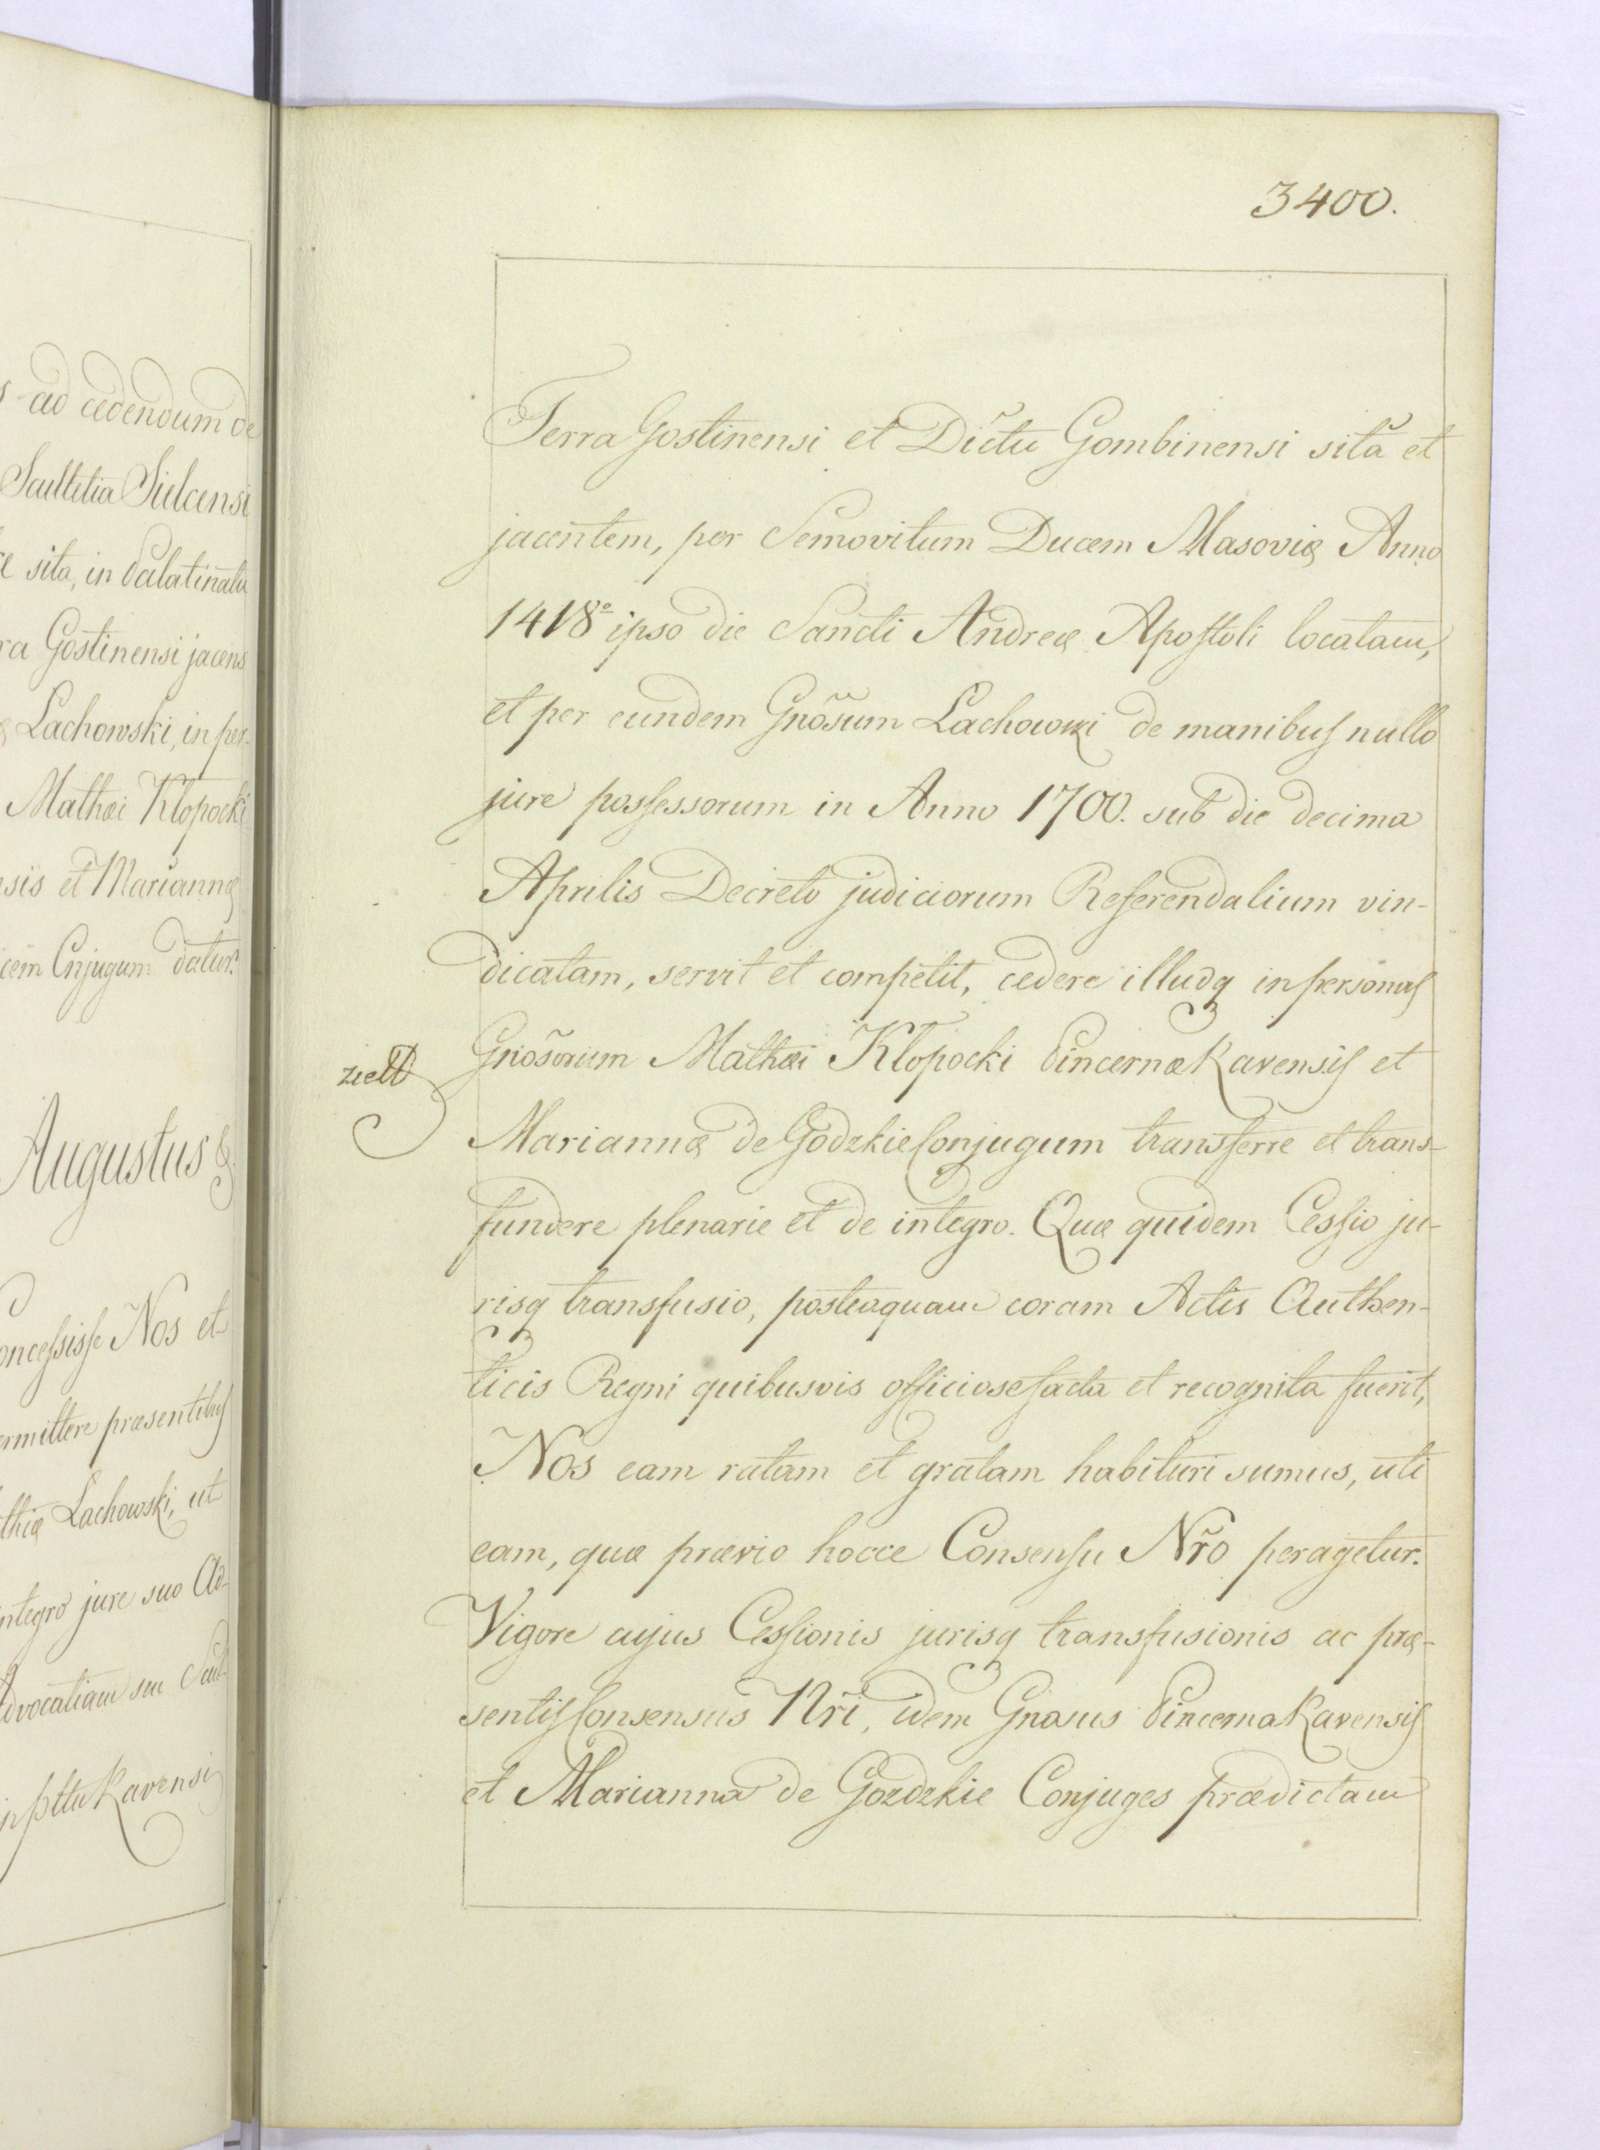 s ad cedendum de
Scultetia Sielcensi
sita, in Palatinatu
ra Gostinensi jacens
Lachowski, in per-
Mathæi Kłopocki
nsis et Mariannæ
Cnjugum datur.
Augustus
oncessisse Nos et
ermittere præsentibus
thiæ Lachowski, ut
integro jure suo Ad-
dvocatiam seu Scul-
in Pttu Ravensi
3400.
Terra Gostinensi et Dictu Gombinensi sitã et
jacentem, per Semovitum Ducem Masoviæ Anno
1418º ipso die Sancti Andreæ Apostoli locatam,
et per eundem Gnõsum Lachowski de manibus nullo
jure possessorum in Anno 1700. sub die decima
Aprilis Decreto judiciorum Referendalium vin-
dicatam, servit et competit, cedere illudq in personas
Gnõsorum Mathæi Kłopocki Pincernæ Ravensis et
Mariannæ de Godzkie Conjugum transferre et trans-
fundere plenarie et de integro. Quæ quidem Cessio ju-
risq transfusio, posteaquam coram Actis Authen-
ticis Regni quibusvis officiose facta et recognita fuerit,
Nos eam ratam et gratam habituri sumus, uti
eam, quæ prævio hocce Consensu Nr̃o peragetur.
Vigore cujus Cessionis jurisq transfusionis ac præ-
sentis Consensus Nr̃i, idem Gnosus Pincerna Ravensis
et Marianna de Gozdzkie Conjuges prædictam